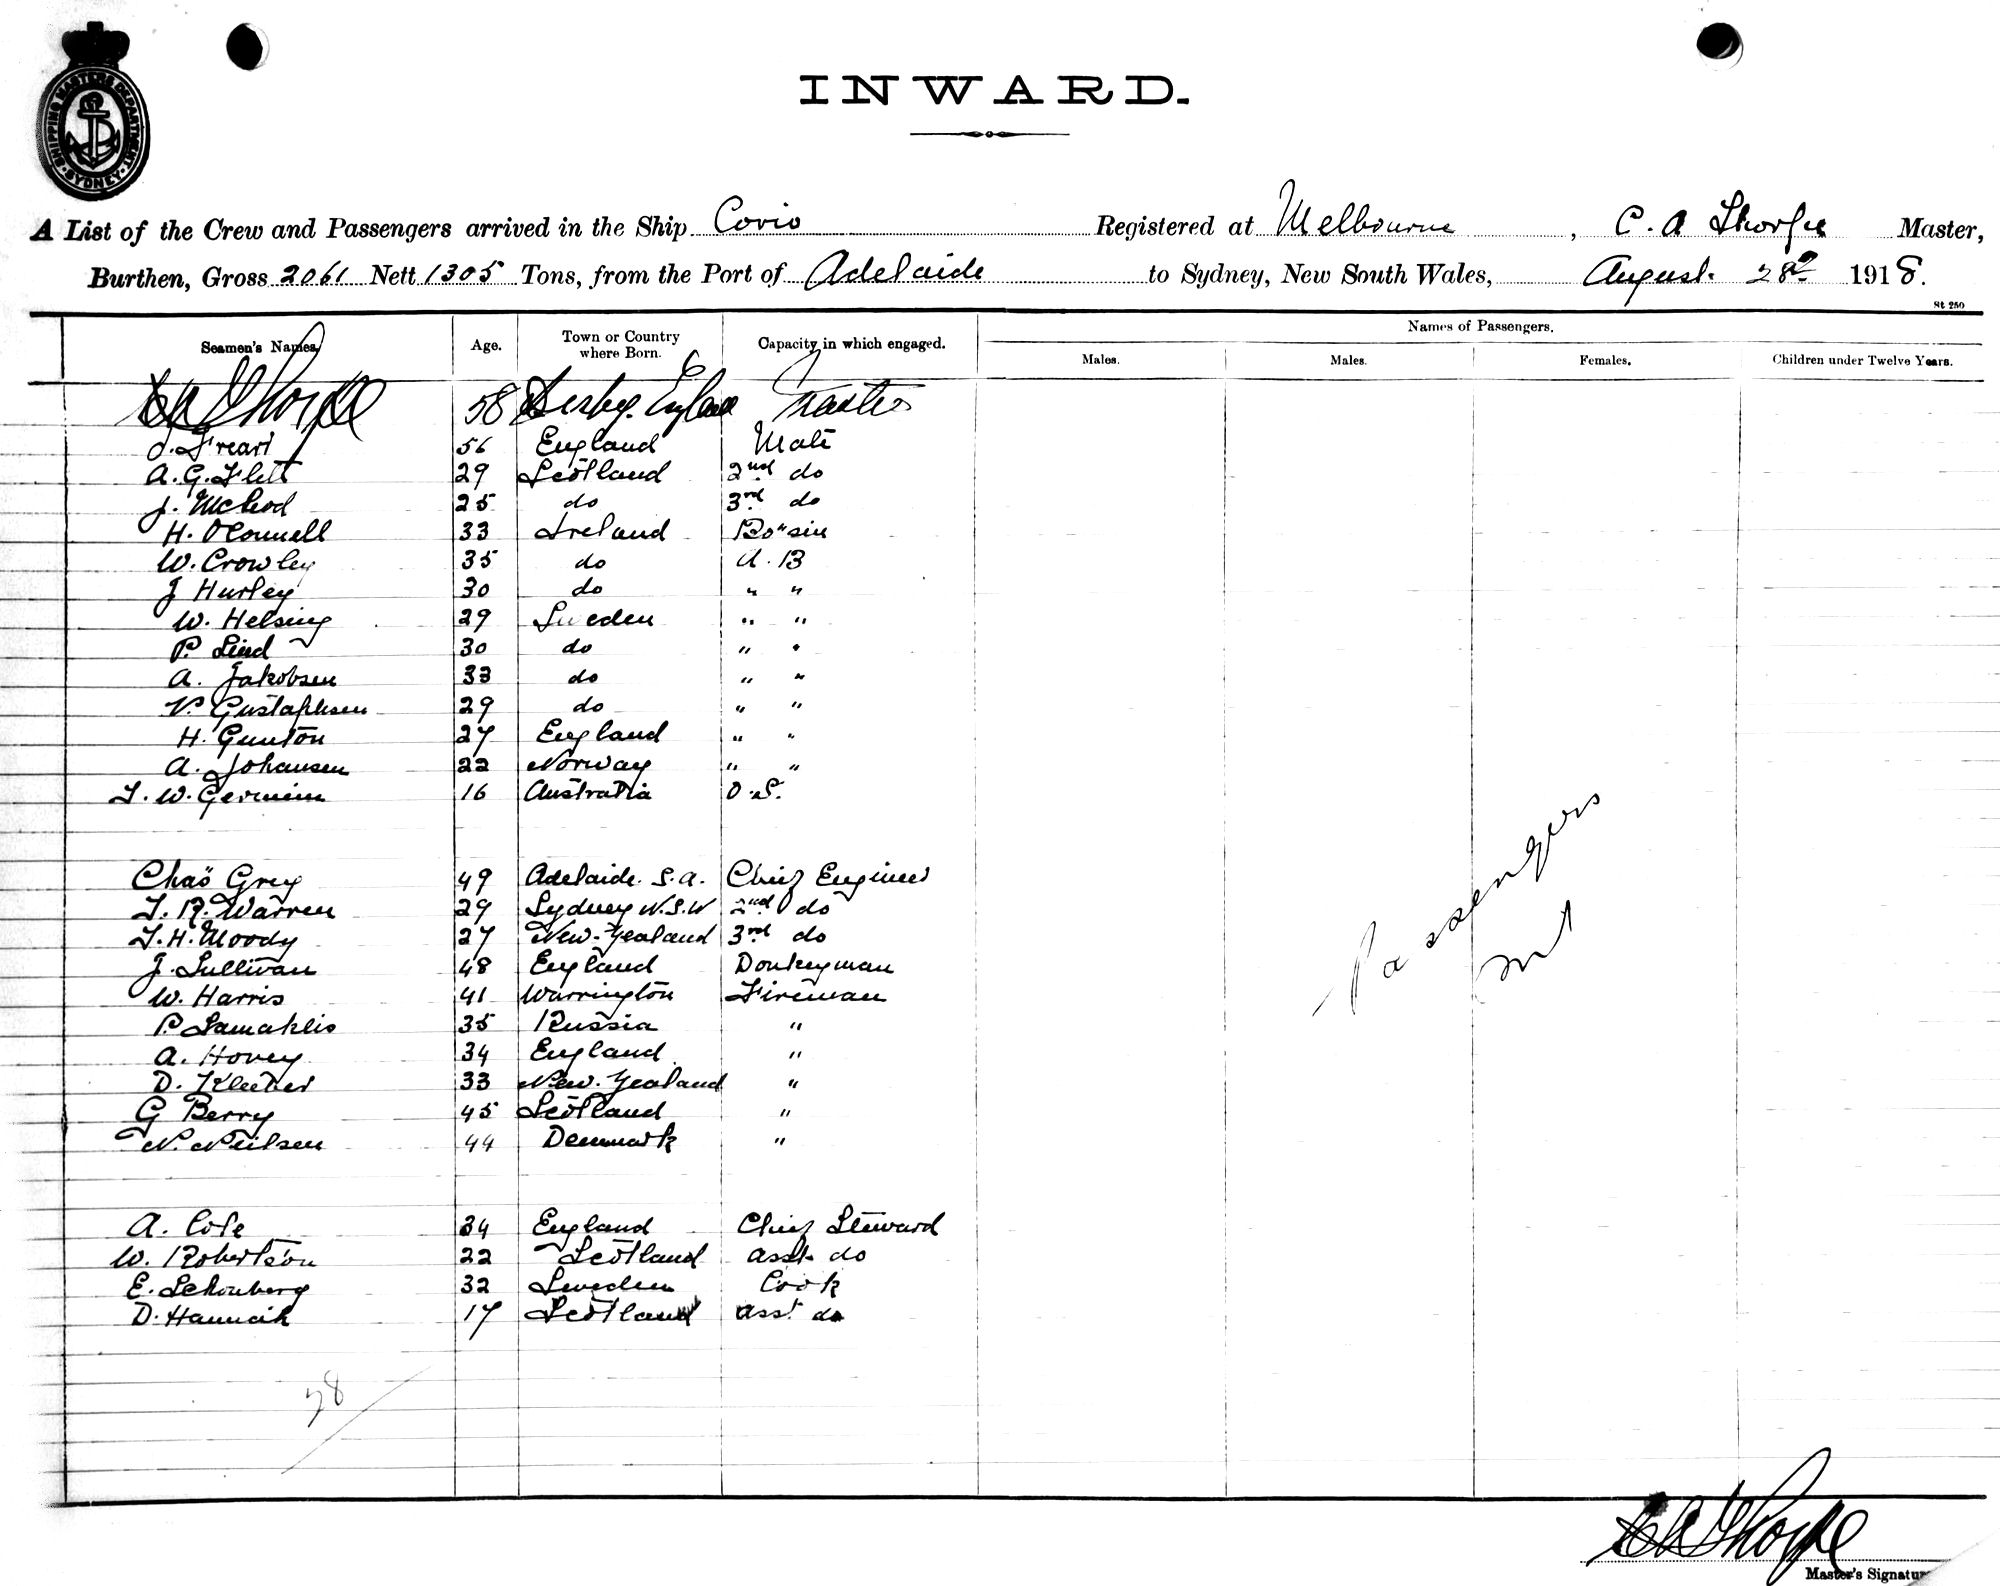 SHIPPING MASTERS DEPARTMENT SYDNEY
INWARD.
A List of the Crew and Passengers arrived in the Ship Corio Registered at Melbourne, C. A Thorpe Master,
Burthen, Gross 2061 Nett 1305 Tons, from the Port of Adelaide to Sydney, New South Wales, August 28th 1918.
St 250
Seamen's Names. Age. Town or Country where Born. Capacity in which engaged. Names of Passengers.
Males. Males. Females. Children under Twelve Years.
CA Thorpe 58 Derby. England Master
56 England Mate
A. G. Flett 29 Scotland 2nd do
J. McLeod 25 do 3rd do
H. OConnell 33 Ireland Bo"sin
W. Crowley 35 do A. B
J Hurley 30 do " "
W. Helsing 29 Sweden " "
P. Lind 30 do " "
A. Jakobsen 33 do " "
V. Gustaphsen 29 do " "
H. Gunton 27 England " "
A. Johansen 22 Norway " "
T. W. Germein 16 Australia O.S.
Chas Grey 49 Adelaide. S.A. Chief Engineer
T. R. Warren 29 Sydney N.S.W 2nd do
T. H. Moody 27 New-Zealand 3rd do
J. Sullivan 48 England Donkeyman
W. Harris 41 Warrington Fireman
P. 35 Russia "
A. Hovey 34 England "
D. 33 New-Zealand "
G Berry 45 Scotland "
N. Neilsen 44 Denmark "
A. Cole 34 England Chief Steward
W. Robertson 22 Scotland asst do
E. Schonberg 32 Sweden Cook
D. Hannah 17 Scotland asst do
Passengers
Nil
28
CA Thorpe
Master's Signature